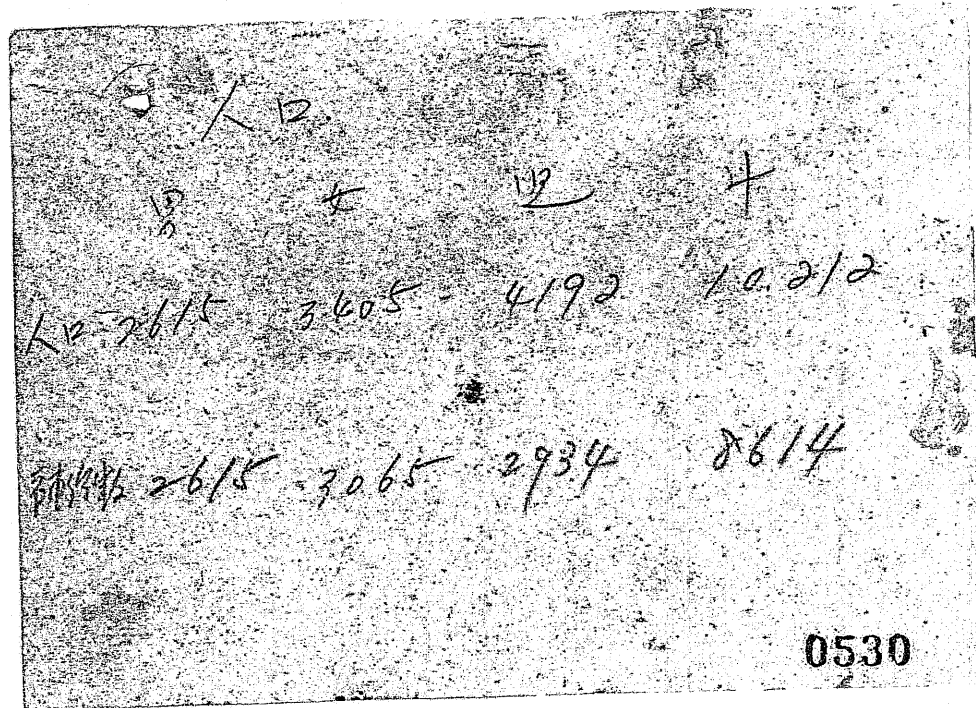 人口.
男 女
人口 2615 3405 4192 10.212
2615 3065 2934 8614
0530